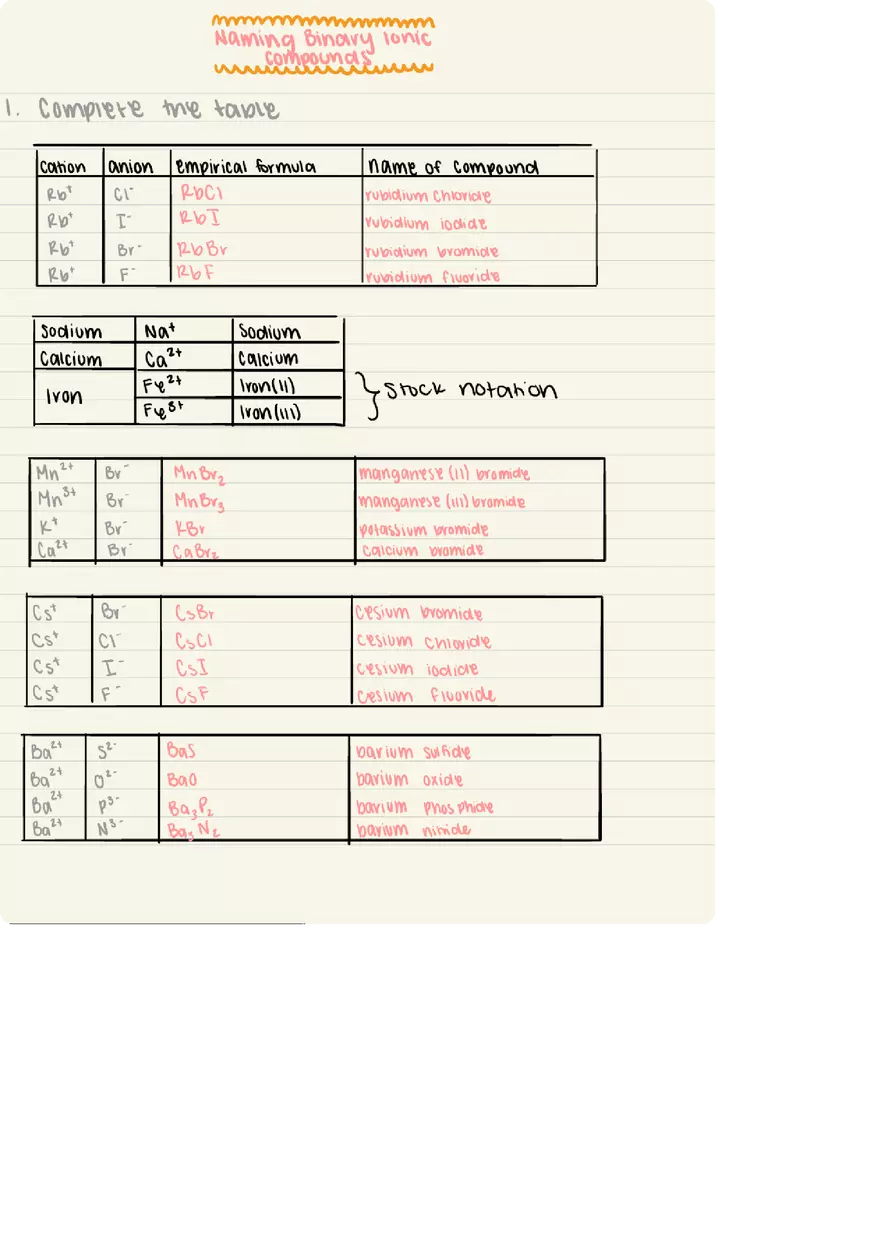 Naming Binary Ionic
Compounds
1. Complete the table
cation anion empirical formula name of compound
Rb⁺ Cl⁻ RbCl rubidium chloride
Rb⁺ I⁻ RbI rubidium iodide
Rb⁺ Br⁻ RbBr rubidium bromide
Rb⁺ F⁻ RbF rubidium fluoride
Sodium Na⁺ Sodium
Calcium Ca²⁺ Calcium
Iron Fe²⁺ Iron(II)
Fe³⁺ Iron(III)
} Stock notation
Mn²⁺ Br⁻ MnBr₂ manganese (II) bromide
Mn³⁺ Br⁻ MnBr₃ manganese (III) bromide
K⁺ Br⁻ KBr potassium bromide
Ca²⁺ Br⁻ CaBr₂ calcium bromide
Cs⁺ Br⁻ CsBr cesium bromide
Cs⁺ Cl⁻ CsCl cesium chloride
Cs⁺ I⁻ CsI cesium iodide
Cs⁺ F⁻ CsF cesium fluoride
Ba²⁺ S²⁻ BaS barium sulfide
Ba²⁺ O²⁻ BaO barium oxide
Ba²⁺ P³⁻ Ba₃P₂ barium phosphide
Ba²⁺ N³⁻ Ba₃N₂ barium nitride